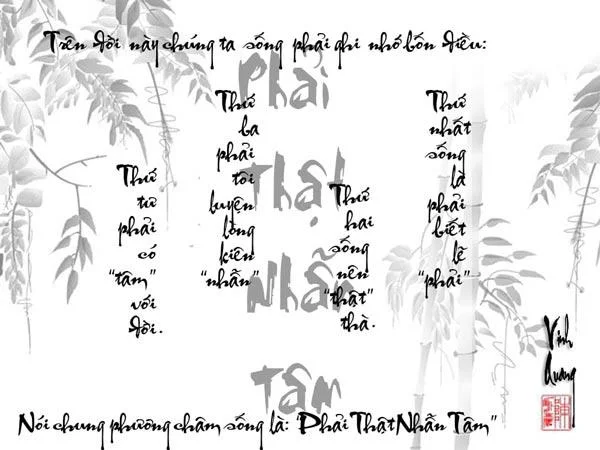 Trên đời này chúng ta sống phải ghi nhớ bốn điều:
Phải
Thật
Nhẫn
Tâm
Thứ
nhất
sống
là
phải
biết
lẽ
“phải”
Thứ
hai
sống
nên
“thật”
thà.
Thứ
ba
phải
tôi
luyện
lòng
kiên
“nhẫn”
Thứ
tư
phải
có
“tâm”
với
đời.
Vinh
Quang
Nói chung phương châm sống là: “Phải Thật Nhẫn Tâm”